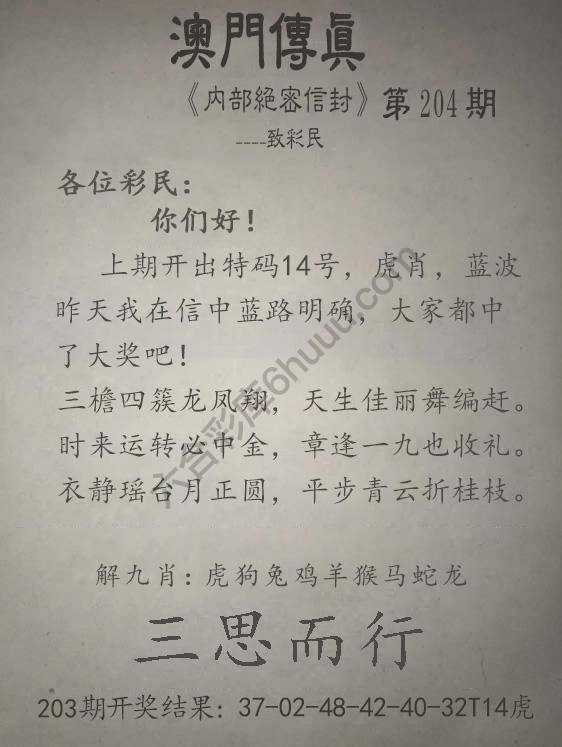 澳門傳眞
《内部絕密信封》第204期
----致彩民
各位彩民:
你们好!
上期开出特码14号，虎肖，蓝波
昨天我在信中蓝路明确，大家都中
了大奖吧!
三檐四簇龙凤翔，天生佳丽舞编赶。
时来运转必中金，章逢一九也收礼。
衣静瑶台月正圆，平步青云折桂枝。
解九肖:虎狗兔鸡羊猴马蛇龙
三思而行
203期开奖结果:37-02-48-42-40-32T14虎
六合彩库6huuu.com